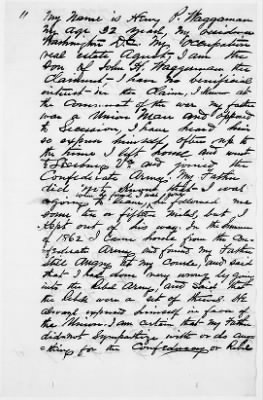 "
My Name is Henry P. Waggaman
My age 32 years, My residence
Washington D.C. My Occupation
real estate Agent, I am the
Son of John H. Waggaman the
Claimant - I have no beneficial
interest in the Claim, I know at
the Commencement of the war my father
was a Union Man and opposed
to Secession, I have heard him
so express himself, often up to
the time I left home and went
and joined the
Confederate Army. My Father
did not know that I was
agoing to leave, he followed me
some ten or fifteen miles, but I
kept out of his way. In the Summer
of 1862 I Came home from the Con-
federate Army and found my Father
still Angry at my Course, and said
that I had done very wrong by going
into the Rebel Army, and said that
the Rebels were a set of thieves. He
always expressed himself in favor of
the Union. I am certain that my Father
did not Sympathize with or do any
-thing for the Confederacy or Rebel